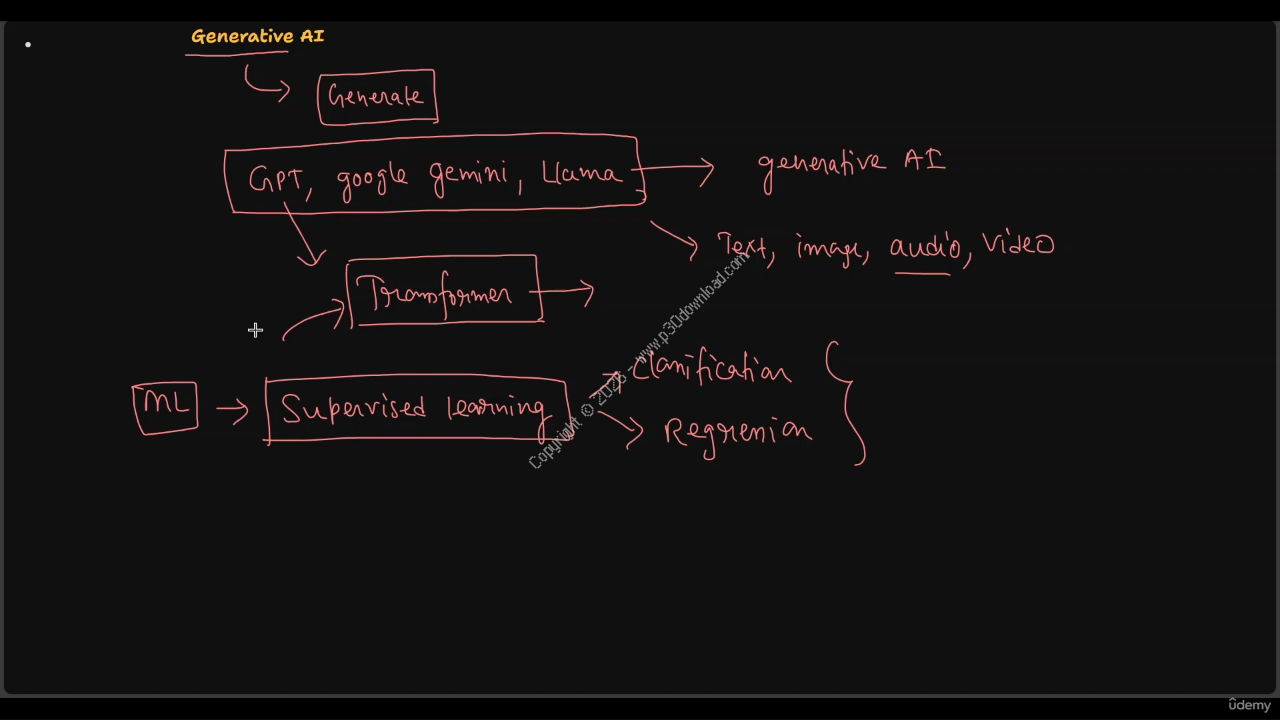 Generative AI
Generate
GPT, google gemini, Llama
generative AI
Text, image, audio, video
Transformer
ML
Supervised learning
Classification
Regression
Copyright © 2026 - www.p30download.com
ûdemy